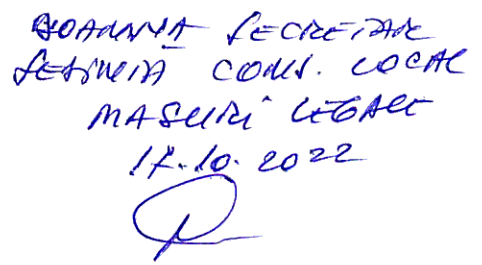 DOAMNA SECRETAR
ȘEDINȚĂ CONS. LOCAL
MASURI LEGALE
17.10.2022